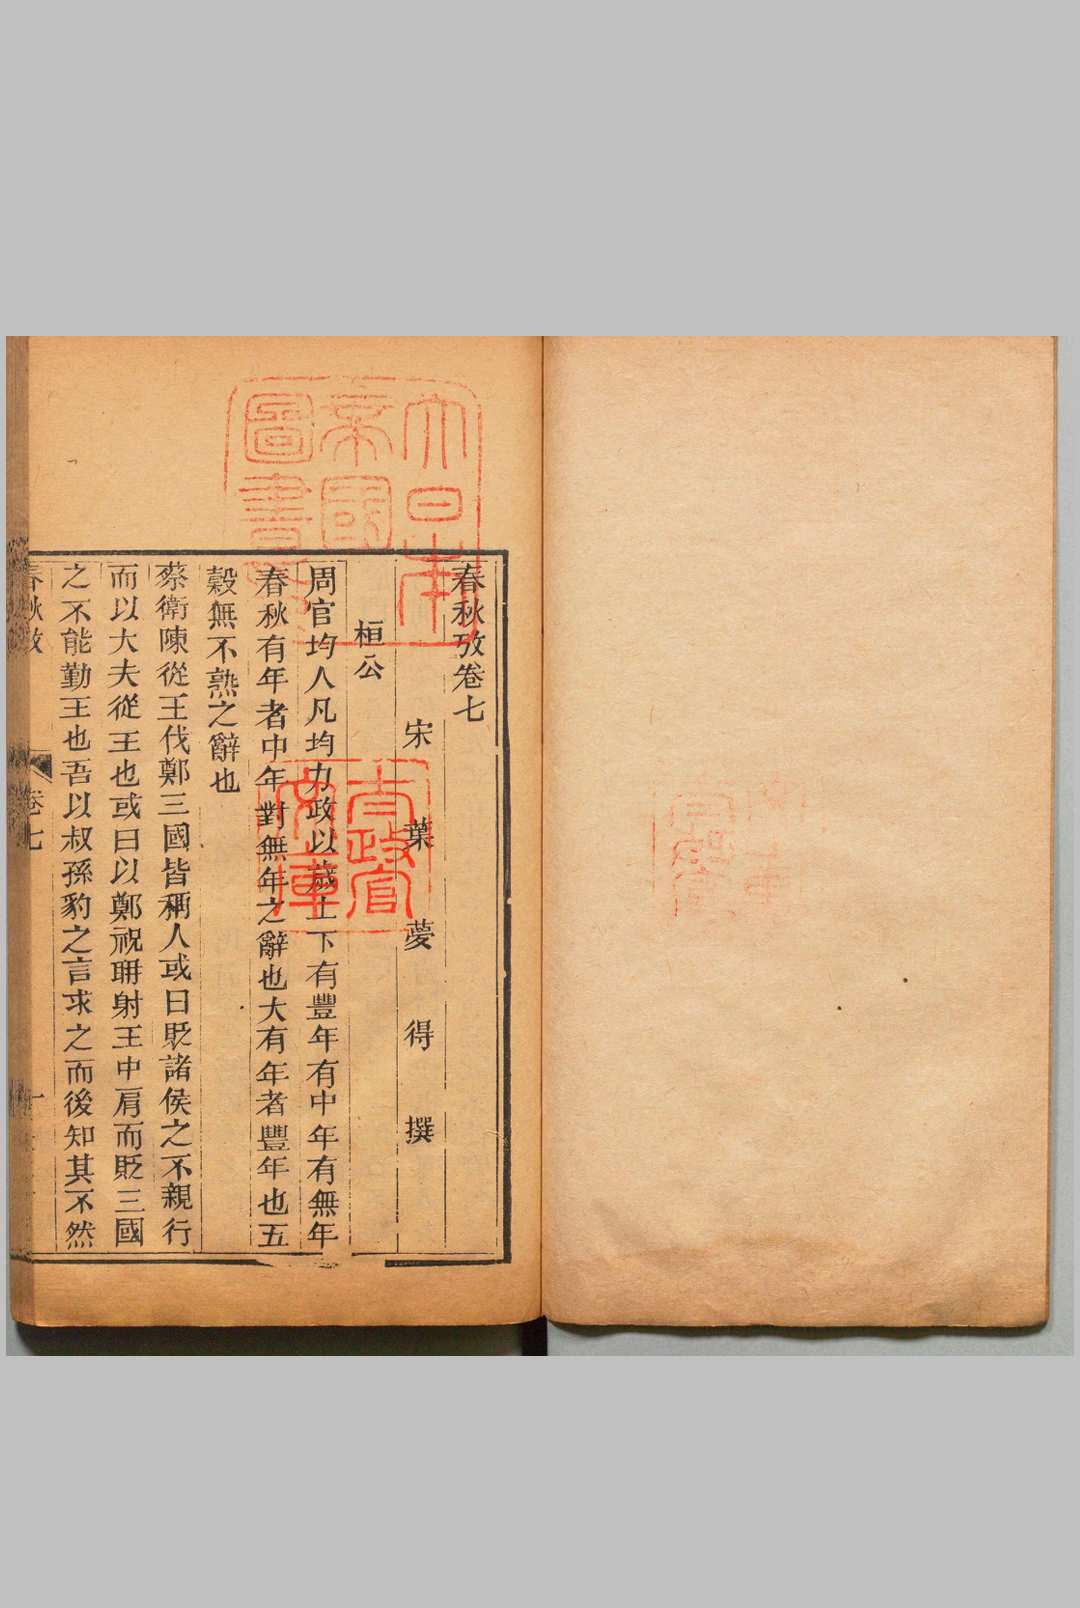 春秋攷卷七
宋葉夢得撰
桓公
周官均人凡均力政以歲上下有豐年有中年有無年
春秋有年者中年對無年之辭也大有年者豐年也五
穀無不熟之辭也
蔡衛陳從王伐鄭三國皆稱人或曰貶諸侯之不親行
而以大夫從王也或曰以鄭祝聃射王中肩而貶三國
之不能勤王也吾以叔孫豹之言求之而後知其不然
春秋攷
卷七
一
大日本
帝國
圖書印
太政官
文庫